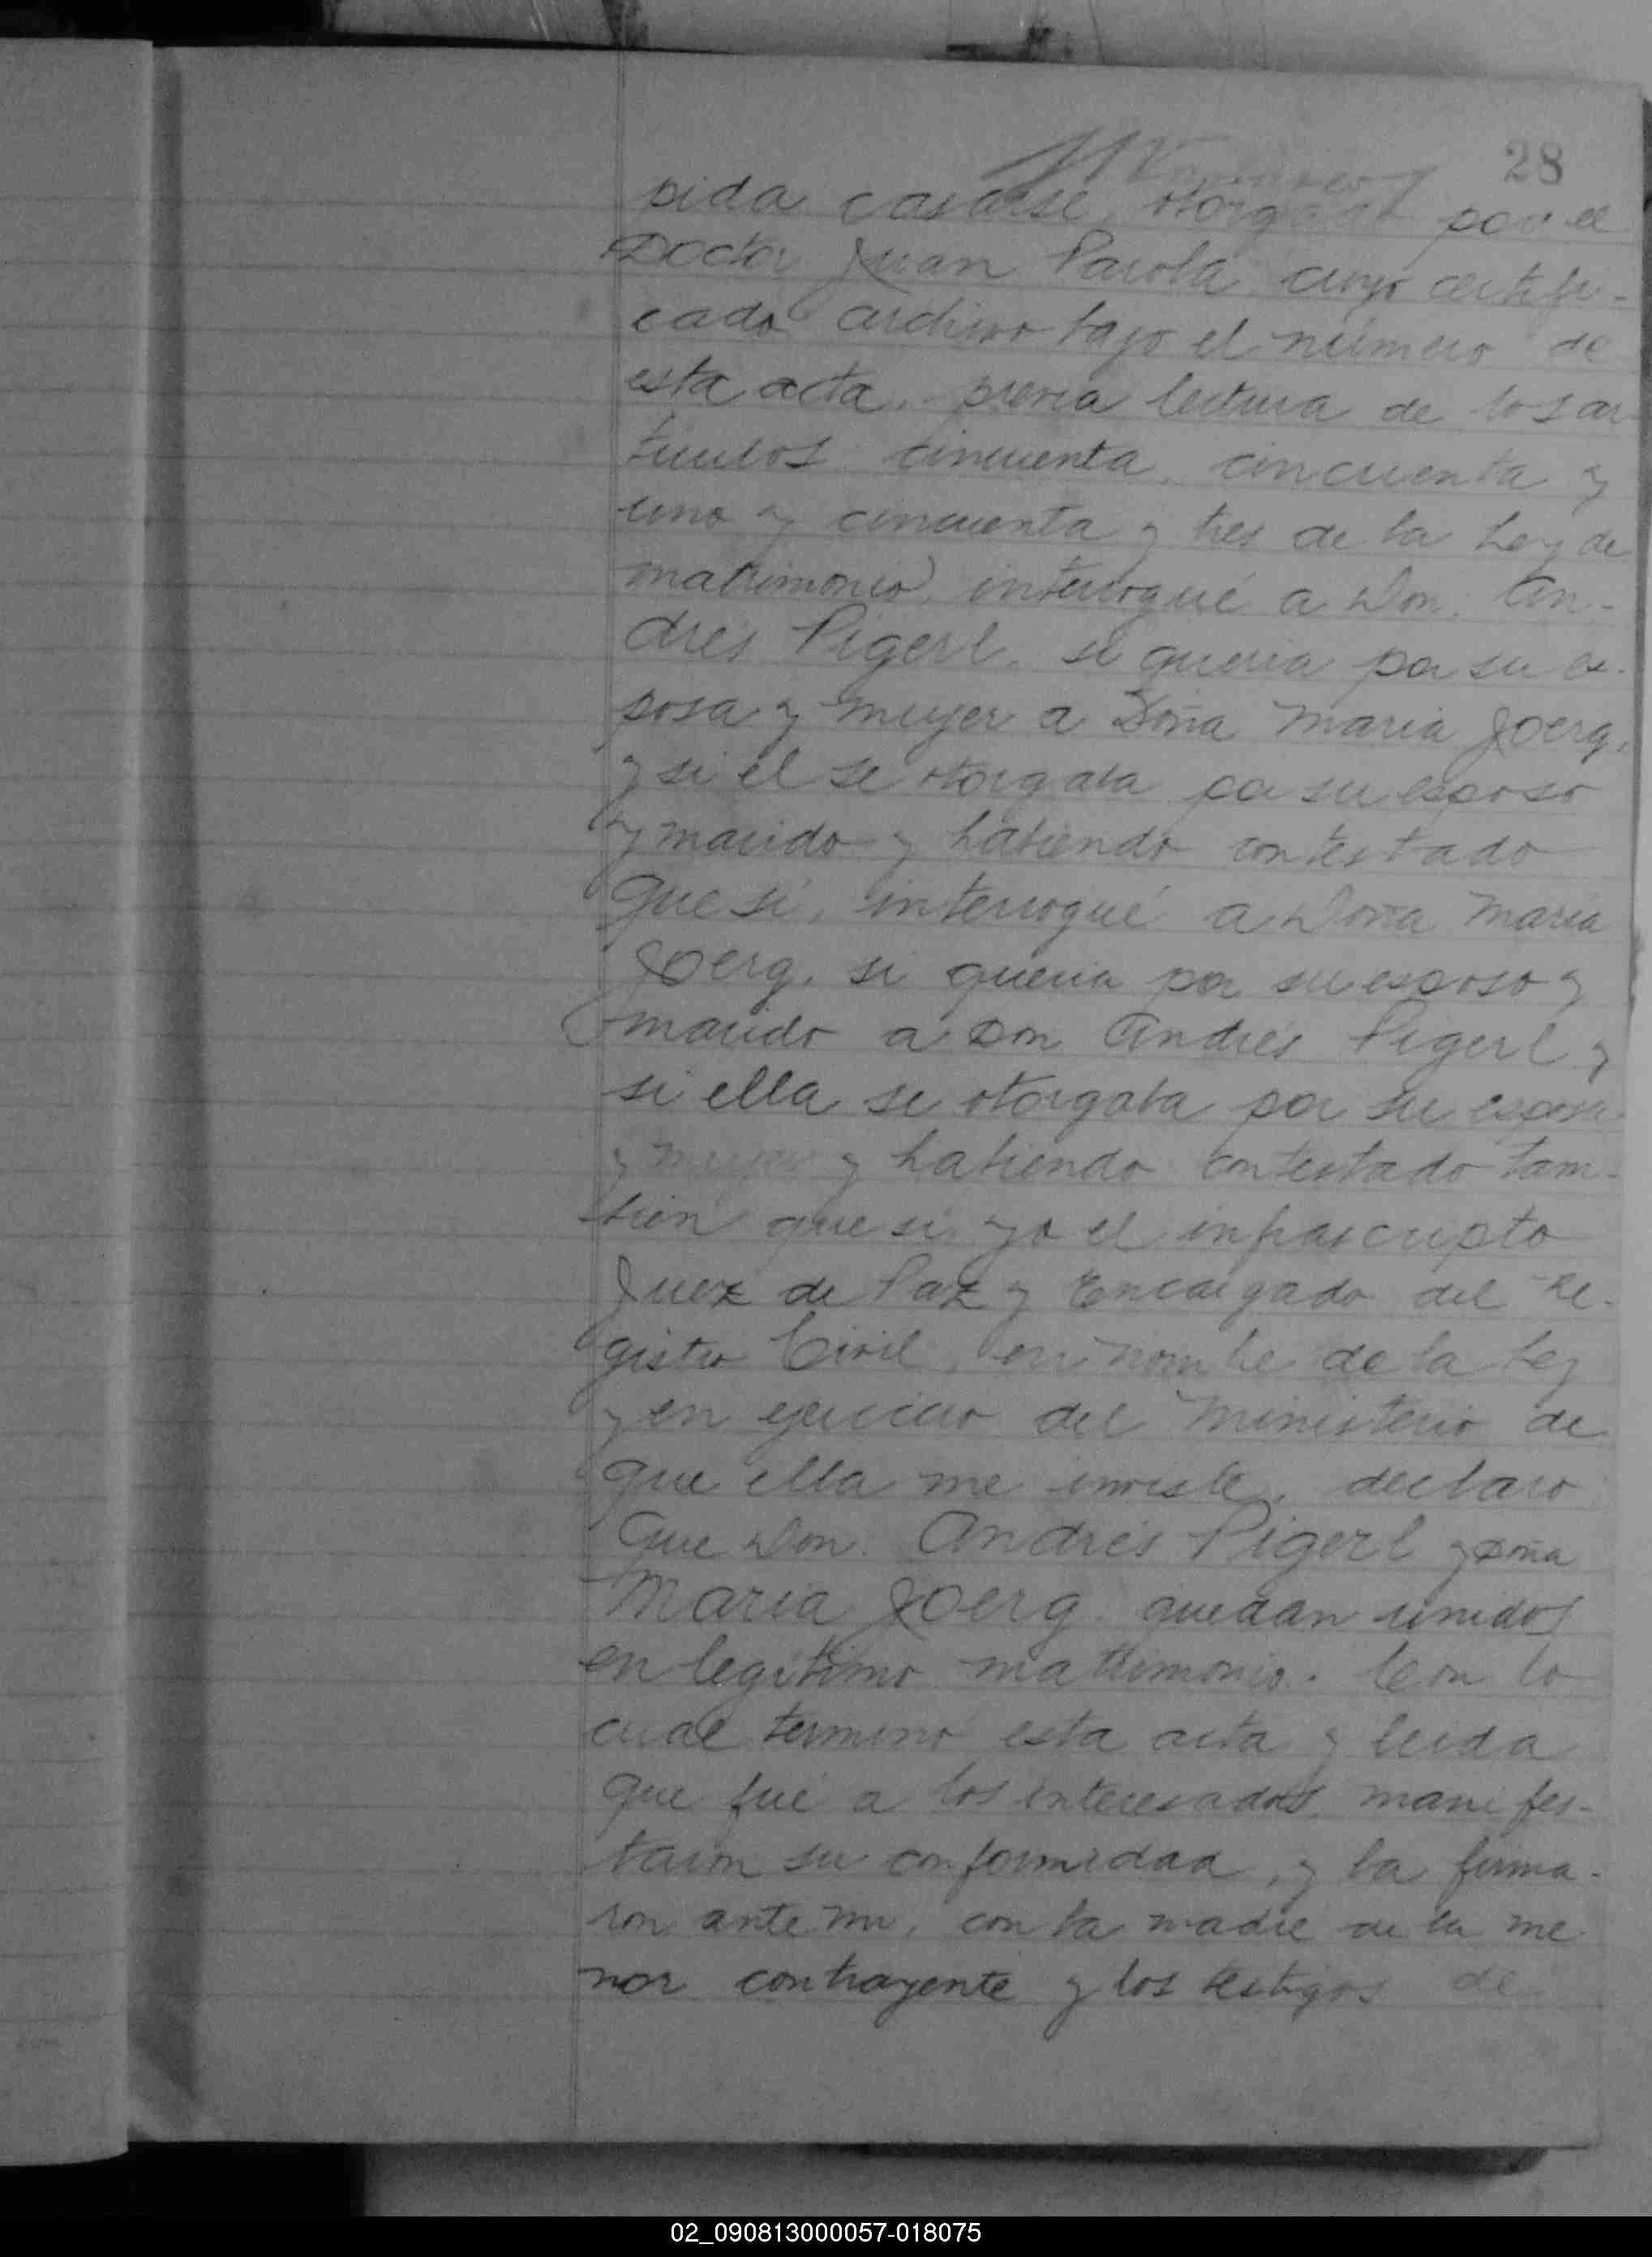 28
pida casarse, otorgado por el
Doctor Juan Parola, cuyo certifi-
cado archivo bajo el número de
esta acta, previa lectura de los ar
tículos cincuenta, cincuenta y
uno y cincuenta y tres de la Ley de
matrimonio, interrogué a Don. An-
drés Pigerl, si queria por su es-
posa y mujer a Doña Maria Joerg,
y si el se otorgaba por su esposo
y marido y habiendo contestado
que si, interrogué a Doña Maria
Joerg, si queria por su esposo y
marido a Don Andrés Pigerl y
si ella se otorgaba por su esposa
y mujer y habiendo contestado tam-
bien que si, yo el infrascripto
Juez de Paz y Encargado del Re-
gistro Civil, en nombre de la Ley
y en ejercicio del Ministerio de
que ella me inviste, declaro
que Don. Andrés Pigerl y Doña
Maria Joerg quedan unidos
en legítimo matrimonio. Con lo
cual terminó esta acta y leida
que fué a los interesados, manifes-
taron su conformidad, y la firma-
ron ante mi, con la madre de la me
nor contrayente y los testigos de
02_090813000057-018075